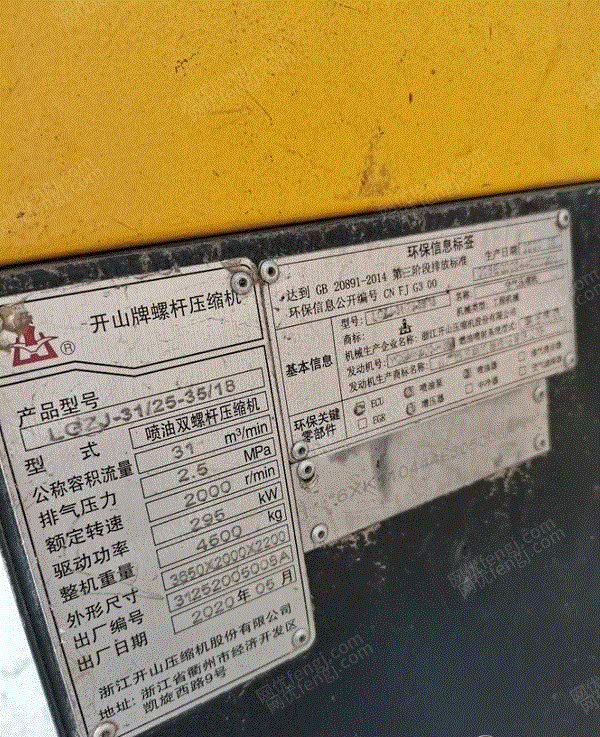 开山牌螺杆压缩机
®
产品型号 LGZJ-31/25-35/18
型 式 喷油双螺杆压缩机
公称容积流量 31 m³/min
排气压力 2.5 MPa
额定转速 2000 r/min
驱动功率 295 kW
整机重量 4600 kg
外形尺寸 3650X2000X2200
出厂编号 31252005005A
出厂日期 2020年05月
浙江开山压缩机股份有限公司
地址:浙江省衢州市经济开发区
凯旋西路9号
环保信息标签
达到 GB 20891-2014 第三阶段排放标准
生产日期
环保信息公开编号 CN FJ G3 00
基本信息
型号:
名称: 空气压缩机
商标:
机械类型: 工程机械
机械生产企业名称: 浙江开山压缩机股份有限公司
发动机号:
发动机生产商名称:
环保关键
零部件
ECU
喷油泵
喷油器
EGR
增压器
中冷器